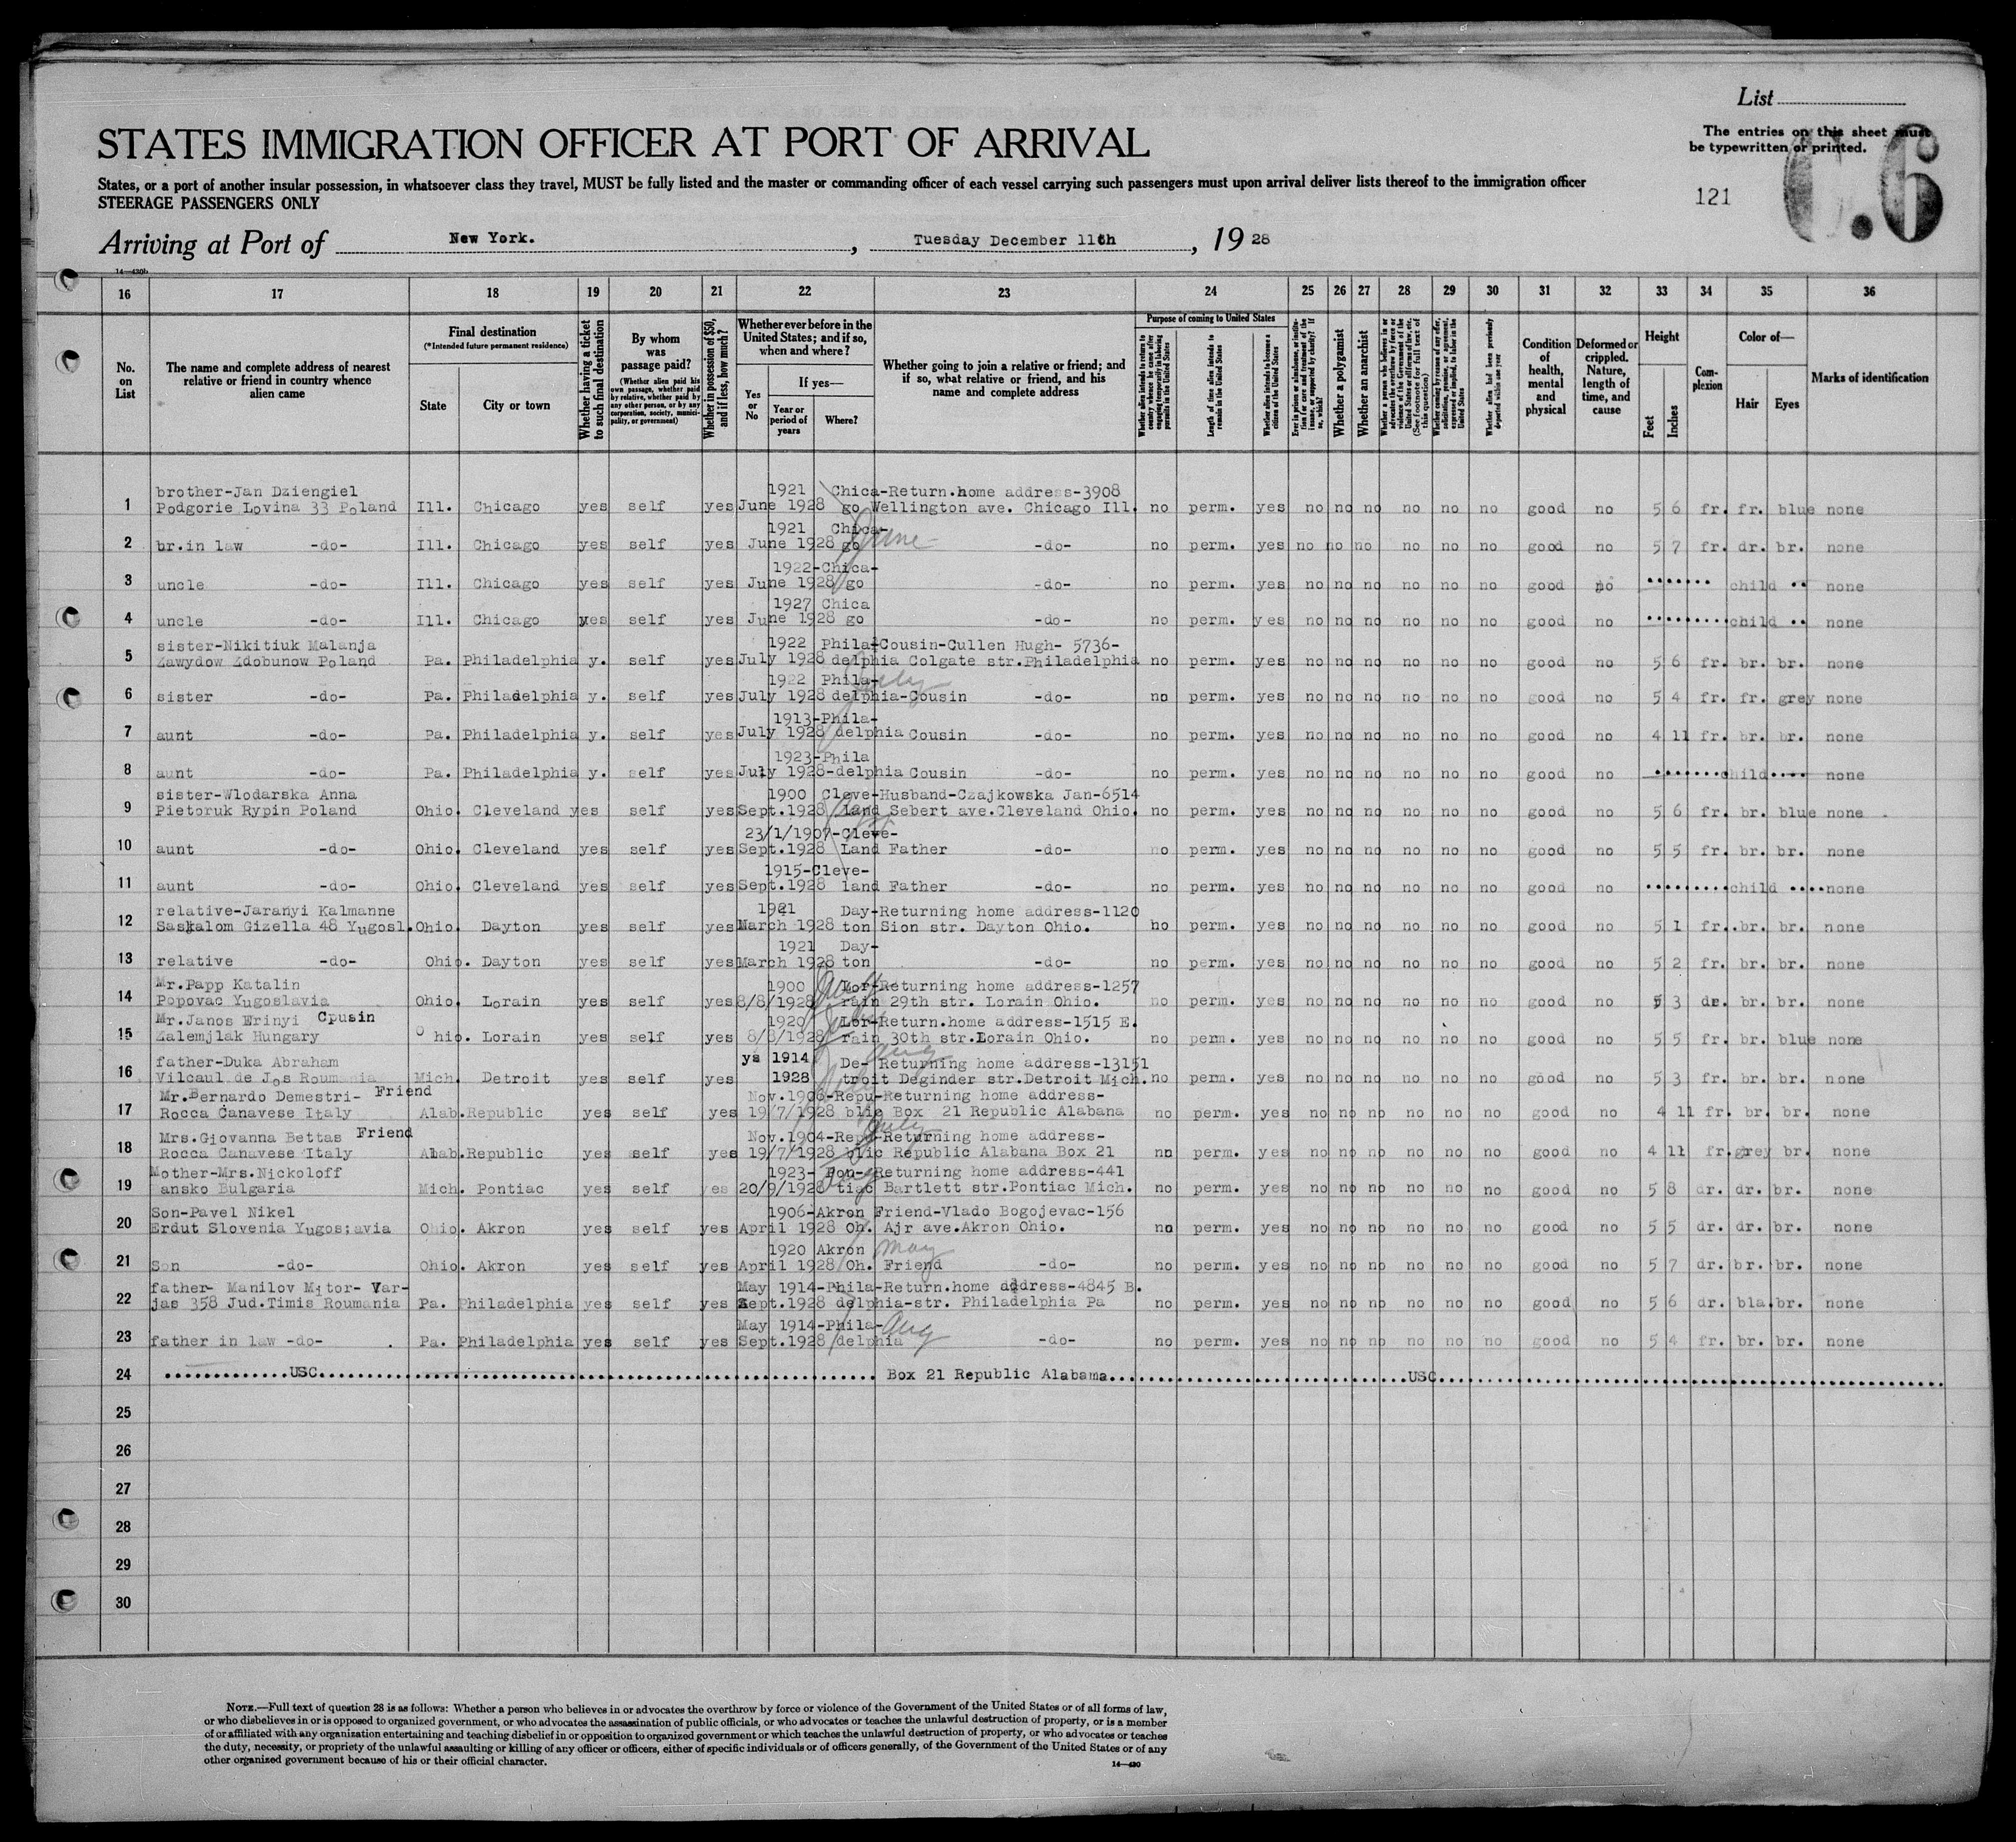 List
The entries on this sheet must
be typewritten or printed.
C.6
121
STATES IMMIGRATION OFFICER AT PORT OF ARRIVAL
States, or a port of another insular possession, in whatsoever class they travel, MUST be fully listed and the master or commanding officer of each vessel carrying such passengers must upon arrival deliver lists thereof to the immigration officer
STEERAGE PASSENGERS ONLY
Arriving at Port of New York. , Tuesday December 11th , 19 28
14—430b
16 17 18 19 20 21 22 23 24 25 26 27 28 29 30 31 32 33 34 35 36
No. on List
The name and complete address of nearest relative or friend in country whence alien came
Final destination
(*Intended future permanent residence)
State
City or town
Whether having a ticket to such final destination
By whom was passage paid?
(Whether alien paid his own passage, whether paid by relative, whether paid by any other person, or by any corporation, society, municipality, or government)
Whether in possession of $50, and if less, how much?
Whether ever before in the United States; and if so, when and where?
Yes or No
If yes—
Year or period of years
Where?
Whether going to join a relative or friend; and if so, what relative or friend, and his name and complete address
Purpose of coming to United States
Whether alien intends to return to country whence he came after engaging temporarily in laboring pursuits in the United States
Length of time alien intends to remain in the United States
Whether alien intends to become a citizen of the United States
Whether a polygamist
Whether an anarchist
Condition of health, mental and physical
Deformed or crippled. Nature, length of time, and cause
Height
Feet
Inches
Complexion
Color of—
Hair
Eyes
Marks of identification
brother-Jan Dziengiel 1921 Chica-Return.home address-3908
1 Podgorie Lovina 33 Poland Ill. Chicago yes self yes June 1928 go Wellington ave. Chicago Ill. no perm. yes no no no no no no good no 5 6 fr. fr. blue none
1921 Chica-
2 br.in law -do- Ill. Chicago yes self yes June 1928 go June -do- no perm. yes no no no no no no good no 5 7 fr. dr. br. none
1922-Chica-
3 uncle -do- Ill. Chicago yes self yes June 1928 go -do- no perm. yes no no no no no no good no child none
1927 Chica
4 uncle -do- Ill. Chicago yes self yes June 1928 go -do- no perm. yes no no no no no no good no child none
sister-Nikitiuk Malanja 1922 Phila-Cousin-Cullen Hugh- 5736-
5 Zawydow Zdobunow Poland Pa. Philadelphia y. self yes July 1928 delphia Colgate str.Philadelphia no perm. yes no no no no no no good no 5 6 fr. br. br. none
1922 Phila- July
6 sister -do- Pa. Philadelphia y. self yes July 1928 delphia-Cousin -do- no perm. yes no no no no no no good no 5 4 fr. fr. grey none
1913-Phila-
7 aunt -do- Pa. Philadelphia y. self yes July 1928 delphia Cousin -do- no perm. yes no no no no no no good no 4 11 fr. br. br. none
1923-Phila
8 aunt -do- Pa. Philadelphia y. self yes July 1928-delphia Cousin -do- no perm. yes no no no no no no good no child none
sister-Wlodarska Anna 1900 Cleve-Husband-Czajkowska Jan-6514
9 Pietoruk Rypin Poland Ohio. Cleveland yes self yes Sept.1928 land Sebert ave.Cleveland Ohio. no perm. yes no no no no no no good no 5 6 fr. br. blue none
23/1/1907-Cleve-
10 aunt -do- Ohio. Cleveland yes self yes Sept.1928 Land Father -do- no perm. yes no no no no no no good no 5 5 fr. br. br. none
1915-Cleve-
11 aunt -do- Ohio. Cleveland yes self yes Sept.1928 land Father -do- no perm. yes no no no no no no good no child none
relative-Jaranyi Kalmanne 1921 Day-Returning home address-1120
12 Saskalom Gizella 48 Yugosl. Ohio. Dayton yes self yes March 1928 ton Sion str. Dayton Ohio. no perm. yes no no no no no no good no 5 1 fr. br. br. none
1921 Day-
13 relative -do- Ohio. Dayton yes self yes March 1928 ton -do- no perm. yes no no no no no no good no 5 2 fr. br. br. none
Mr.Papp Katalin 1900 Lor-Returning home address-1257
14 Popovac Yugoslavia Ohio. Lorain yes self yes 8/8/1928 rain 29th str. Lorain Ohio. no perm. yes no no no no no no good no 5 3 dr. br. br. none
Mr.Janos Erinyi Cpusin 1920 Lor-Return.home address-1515 E.
15 Zalemjlak Hungary Ohio. Lorain yes self yes 8/8/1928 rain 30th str.Lorain Ohio. no perm. yes no no no no no no good no 5 5 fr. br. blue none
father-Duka Abraham ys 1914 De- Returning home address-13151 Aug
16 Vilcaul de Jos Roumania Mich. Detroit yes self yes 1928 troit Deginder str.Detroit Mich. no perm. yes no no no no no no good no 5 3 fr. br. br. none
Mr.Bernardo Demestri- Friend Nov.1906-Repu-Returning home address-
17 Rocca Canavese Italy Alab. Republic yes self yes 19/7/1928 blic Box 21 Republic Alabana no perm. yes no no no no no no good no 4 11 fr. br. br. none
Mrs.Giovanna Bettas Friend Nov.1904-Repu-Returning home address- July
18 Rocca Canavese Italy Alab. Republic yes self yes 19/7/1928 blic Republic Alabana Box 21 no perm. yes no no no no no no good no 4 11 fr. grey br. none
Mother-Mrs.Nickoloff 1923- Pon- Returning home address-441
19 ansko Bulgaria Mich. Pontiac yes self yes 20/9/1928 tiac Bartlett str.Pontiac Mich. no perm. yes no no no no no no good no 5 8 dr. dr. br. none
Son-Pavel Nikel 1906-Akron Friend-Vlado Bogojevac-156
20 Erdut Slovenia Yugos;avia Ohio. Akron yes self yes April 1928 Oh. Ajr ave.Akron Ohio. no perm. yes no no no no no no good no 5 5 dr. dr. br. none
1920 Akron May
21 Son -do- Ohio. Akron yes self yes April 1928 Oh. Friend -do- no perm. yes no no no no no no good no 5 7 dr. br. br. none
father- Manilov Mitor- Var- May 1914-Phila-Return.home address-4845 B.
22 jas 358 Jud.Timis Roumania Pa. Philadelphia yes self yes Sept.1928 delphia-str. Philadelphia Pa no perm. yes no no no no no no good no 5 6 dr. bla. br. none
May 1914-Phila- Aug
23 father in law -do- Pa. Philadelphia yes self yes Sept.1928 delphia -do- no perm. yes no no no no no no good no 5 4 fr. br. br. none
24 USC Box 21 Republic Alabama USC
25
26
27
28
29
30
NOTE.—Full text of question 28 is as follows: Whether a person who believes in or advocates the overthrow by force or violence of the Government of the United States or of all forms of law,
or who disbelieves in or is opposed to organized government, or who advocates the assassination of public officials, or who advocates or teaches the unlawful destruction of property, or is a member
of or affiliated with any organization entertaining and teaching disbelief in or opposition to organized government or which teaches the unlawful destruction of property, or who advocates or teaches
the duty, necessity, or propriety of the unlawful assaulting or killing of any officer or officers, either of specific individuals or of officers generally, of the Government of the United States or of any
other organized government because of his or their official character.
14—430